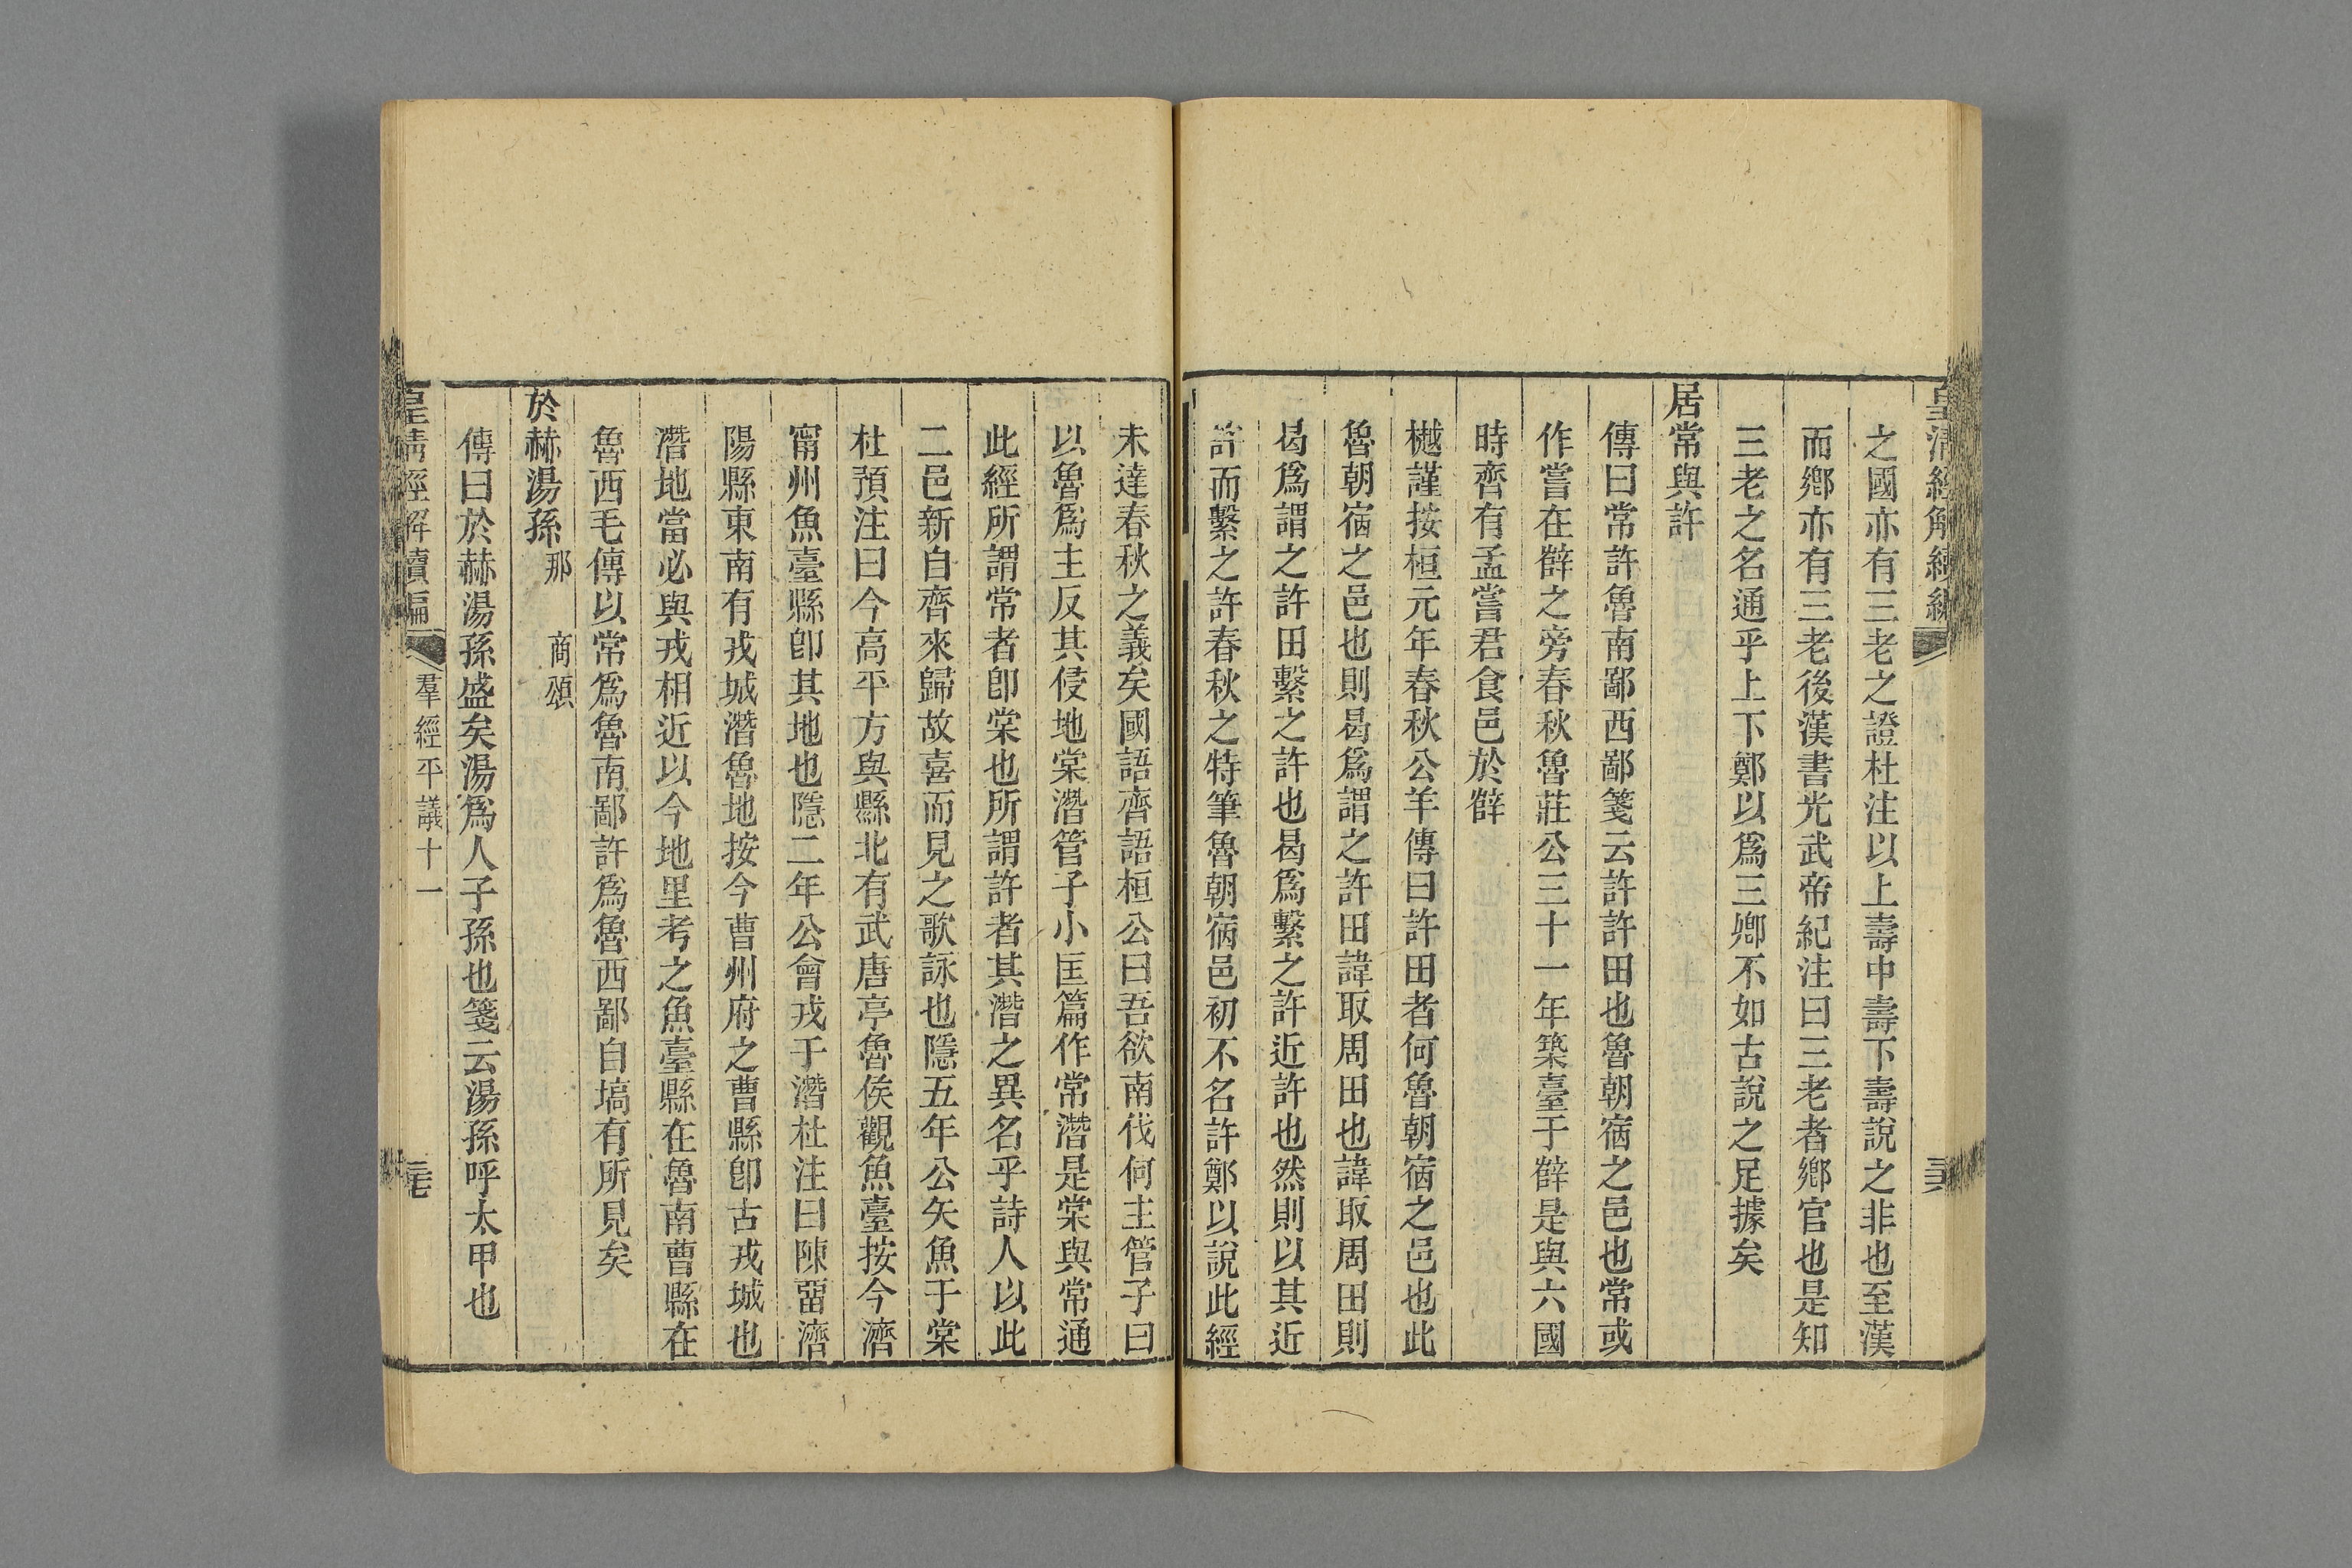 皇清經解續編
之國亦有三老之證杜注以上壽中壽下壽說之非也至漢
而鄉亦有三老後漢書光武帝紀注曰三老者鄉官也是知
三老之名通乎上下鄭以爲三卿不如古說之足據矣
居常與許
傳曰常許魯南鄙西鄙箋云許許田也魯朝宿之邑也常或
作嘗在薛之旁春秋魯莊公三十一年築臺于薛是與六國
時齊有孟嘗君食邑於薛
樾謹按桓元年春秋公羊傳曰許田者何魯朝宿之邑也此
魯朝宿之邑也則曷爲謂之許田諱取周田也諱取周田則
曷爲謂之許田繫之許也曷爲繫之許近許也然則以其近
許而繫之許春秋之特筆魯朝宿邑初不名許鄭以說此經
未達春秋之義矣國語齊語桓公曰吾欲南伐何主管子曰
以魯爲主反其侵地棠潛管子小匡篇作常潛是棠與常通
此經所謂常者卽棠也所謂許者其潛之異名乎詩人以此
二邑新自齊來歸故喜而見之歌詠也隱五年公矢魚于棠
杜預注曰今高平方與縣北有武唐亭魯侯觀魚臺按今濟
甯州魚臺縣卽其地也隱二年公會戎于潛杜注曰陳畱濟
陽縣東南有戎城潛魯地按今曹州府之曹縣卽古戎城也
潛地當必與戎相近以今地里考之魚臺縣在魯南曹縣在
魯西毛傳以常爲魯南鄙許爲魯西鄙自塙有所見矣
於赫湯孫 那 商頌
傳曰於赫湯孫盛矣湯爲人子孫也箋云湯孫呼太甲也
皇清經解續編 羣經平議十一